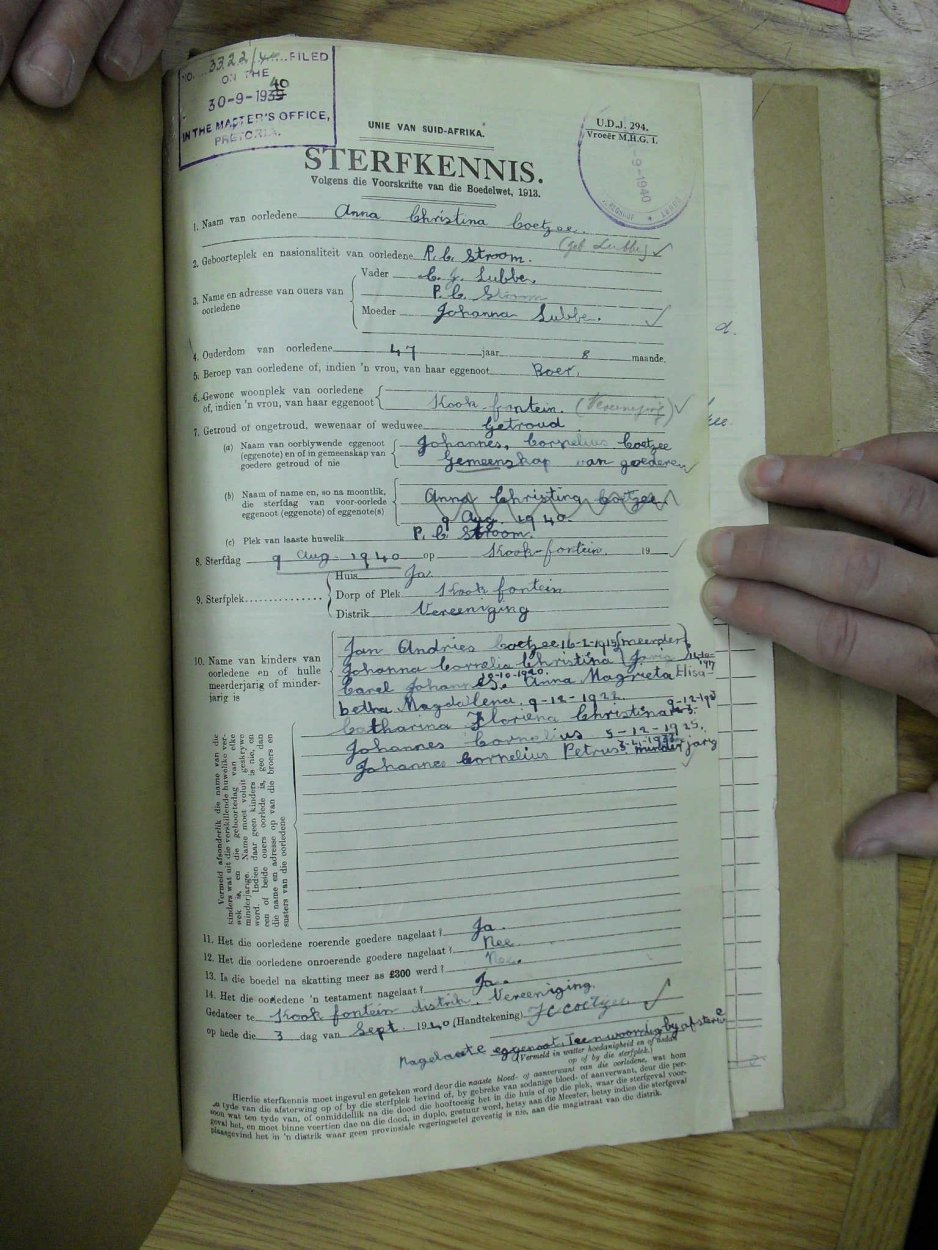 NO. 3322/40 FILED
ON THE
40
30-9-1939
IN THE MASTER'S OFFICE,
PRETORIA.
UNIE VAN SUID-AFRIKA.
U.D.J. 294.
Vroeër M.H.G. 1.
-9-1940
STERFKENNIS.
Volgens die Voorskrifte van die Boedelwet, 1913.
1. Naam van oorledene Anna Christina Coetzee.
(geb Lubbe)
2. Geboorteplek en nasionaliteit van oorledene P.C. Stroom.
3. Name en adresse van ouers van oorledene
Vader C. J. Lubbe.
P. C. Stroom
Moeder Johanna Lubbe.
4. Ouderdom van oorledene 47 jaar 8 maande.
5. Beroep van oorledene of, indien 'n vrou, van haar eggenoot Boer.
6. Gewone woonplek van oorledene
of, indien 'n vrou, van haar eggenoot Kook-fontein. (Vereeniging)
7. Getroud of ongetroud, wewenaar of weduwee Getroud
(a) Naam van oorblywende eggenoot Johannes, Cornelius Coetzee
(eggenote) en of in gemeenskap van Gemeenskap van goederen
goedere getroud of nie
(b) Naam of name en, so na moontlik, Anna Christina Coetzee
die sterfdag van voor-oorlede 9 Aug. 1940.
eggenoot (eggenote) of eggenote(s)
(c) Plek van laaste huwelik P. C. Stroom.
8. Sterfdag 9 Aug. 1940 op Kook-fontein. 19
9. Sterfplek
Huis Ja
Dorp of Plek Kook fontein
Distrik Vereeniging
10. Name van kinders van
oorledene en of hulle
meerderjarig of minder-
jarig is
Jan Andries Coetzee 16-2-1915 (meerder
Johanna Cornelia Christina
Carel Johannes. Anna Magrieta Elisa-
betha Magdalena. 9-12-1922.
Catharina Floriena Christina
Johannes Cornelius 5-12-1925.
Johannes Cornelius Petrus minderjarig
Vermeld afsonderlik die name van die
kinders wat uit die verskillende huwelike ver-
wek is, en die geboortedag van elke
minderjarige. Name moet voluit geskrywe
word. Indien daar geen kinders is nie, en
een of beide ouers oorlede is, gee dan
die name en adresse op van die broers en
susters van die oorledene
11. Het die oorledene roerende goedere nagelaat? Ja.
12. Het die oorledene onroerende goedere nagelaat? Nee.
13. Is die boedel na skatting meer as £300 werd? Nee.
14. Het die oorledene 'n testament nagelaat? Ja.
Gedateer te Kook fontein distrik. Vereeniging.
op hede die 3 dag van Sept. 1940 (Handtekening) J C Coetzee
Nagelaate eggenoot. Teenwoordig by afsterwe
(Vermeld in watter hoedanigheid en of aldan
op of by die sterfplek.)
Hierdie sterfkennis moet ingevul en geteken word deur die naaste bloed- of aanverwant van die oorledene, wat hom
ten tyde van die afsterwing op of by die sterfplek bevind of, by gebreke van sodanige bloed- of aanverwant, deur die per-
soon wat ten tyde van, of onmiddellik na die dood die hooftoesig het in die huis of op die plek, waar die sterfgeval voor-
geval het, en moet binne veertien dae na die dood, in duplo, gestuur word, hetsy aan die Meester, hetsy indien die sterfgeval
plaasgevind het in 'n distrik waar geen provinsiale regeringsetel gevestig is nie, aan die magistraat van die distrik.